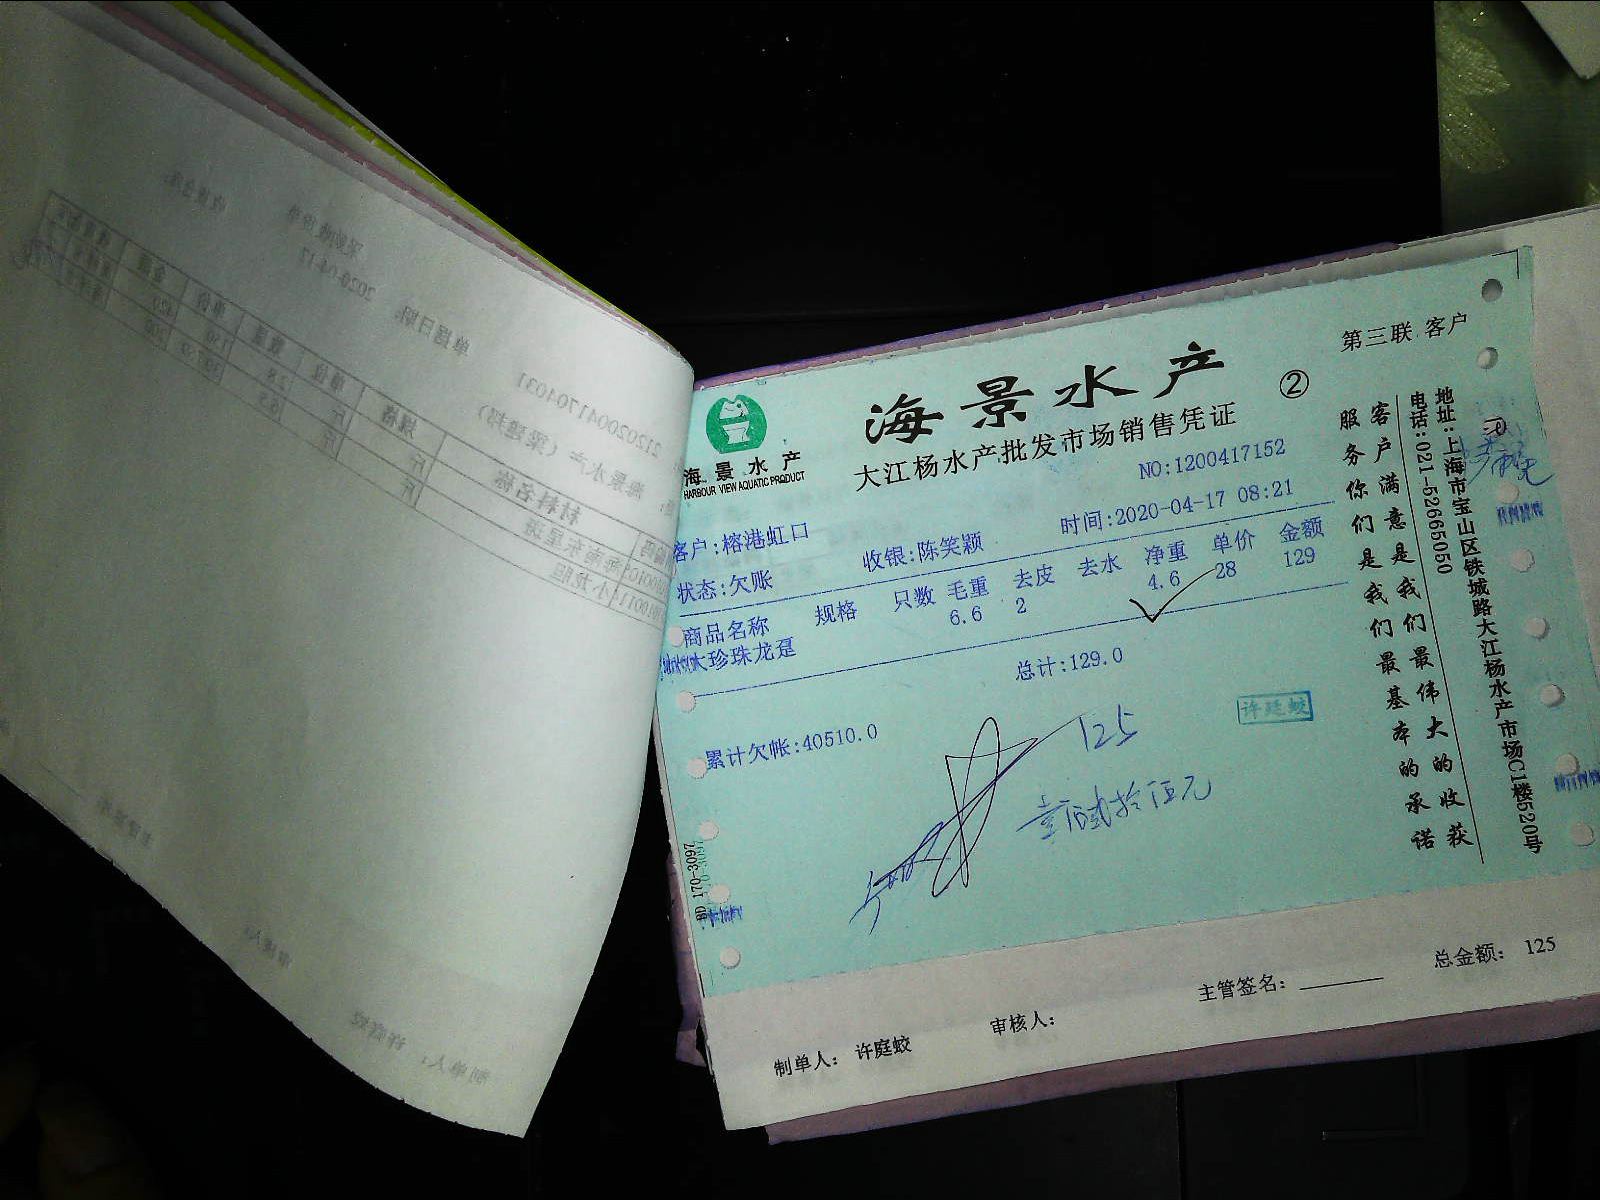 第三联.客户
海景水产
②
大江杨水产批发市场销售凭证
海景水产
HARBOUR VIEW AQUATIC PRODUCT
NO:1200417152
客户:榕港虹口
收银:陈笑颖
时间:2020-04-17 08:21
状态:欠账
商品名称 规格 只数 毛重 去皮 去水 净重 单价 金额
大珍珠龙趸 6.6 2 4.6 28 129
总计:129.0
累计欠帐:40510.0
125
壹佰贰拾伍元
许廷蛟
客户满意是我们最伟大的收获
服务你们是我们最基本的承诺
地址:上海市宝山区铁城路大江杨水产市场C1楼520号
电话:021-52665050
BD 170-3097
总金额: 125
主管签名:
审核人:
制单人: 许庭蛟
2020-04-17
单据日期:
212020041704031
海景水产(梁建邦)
材料名称
海南东星斑
小龙胆
制单人: 许庭蛟